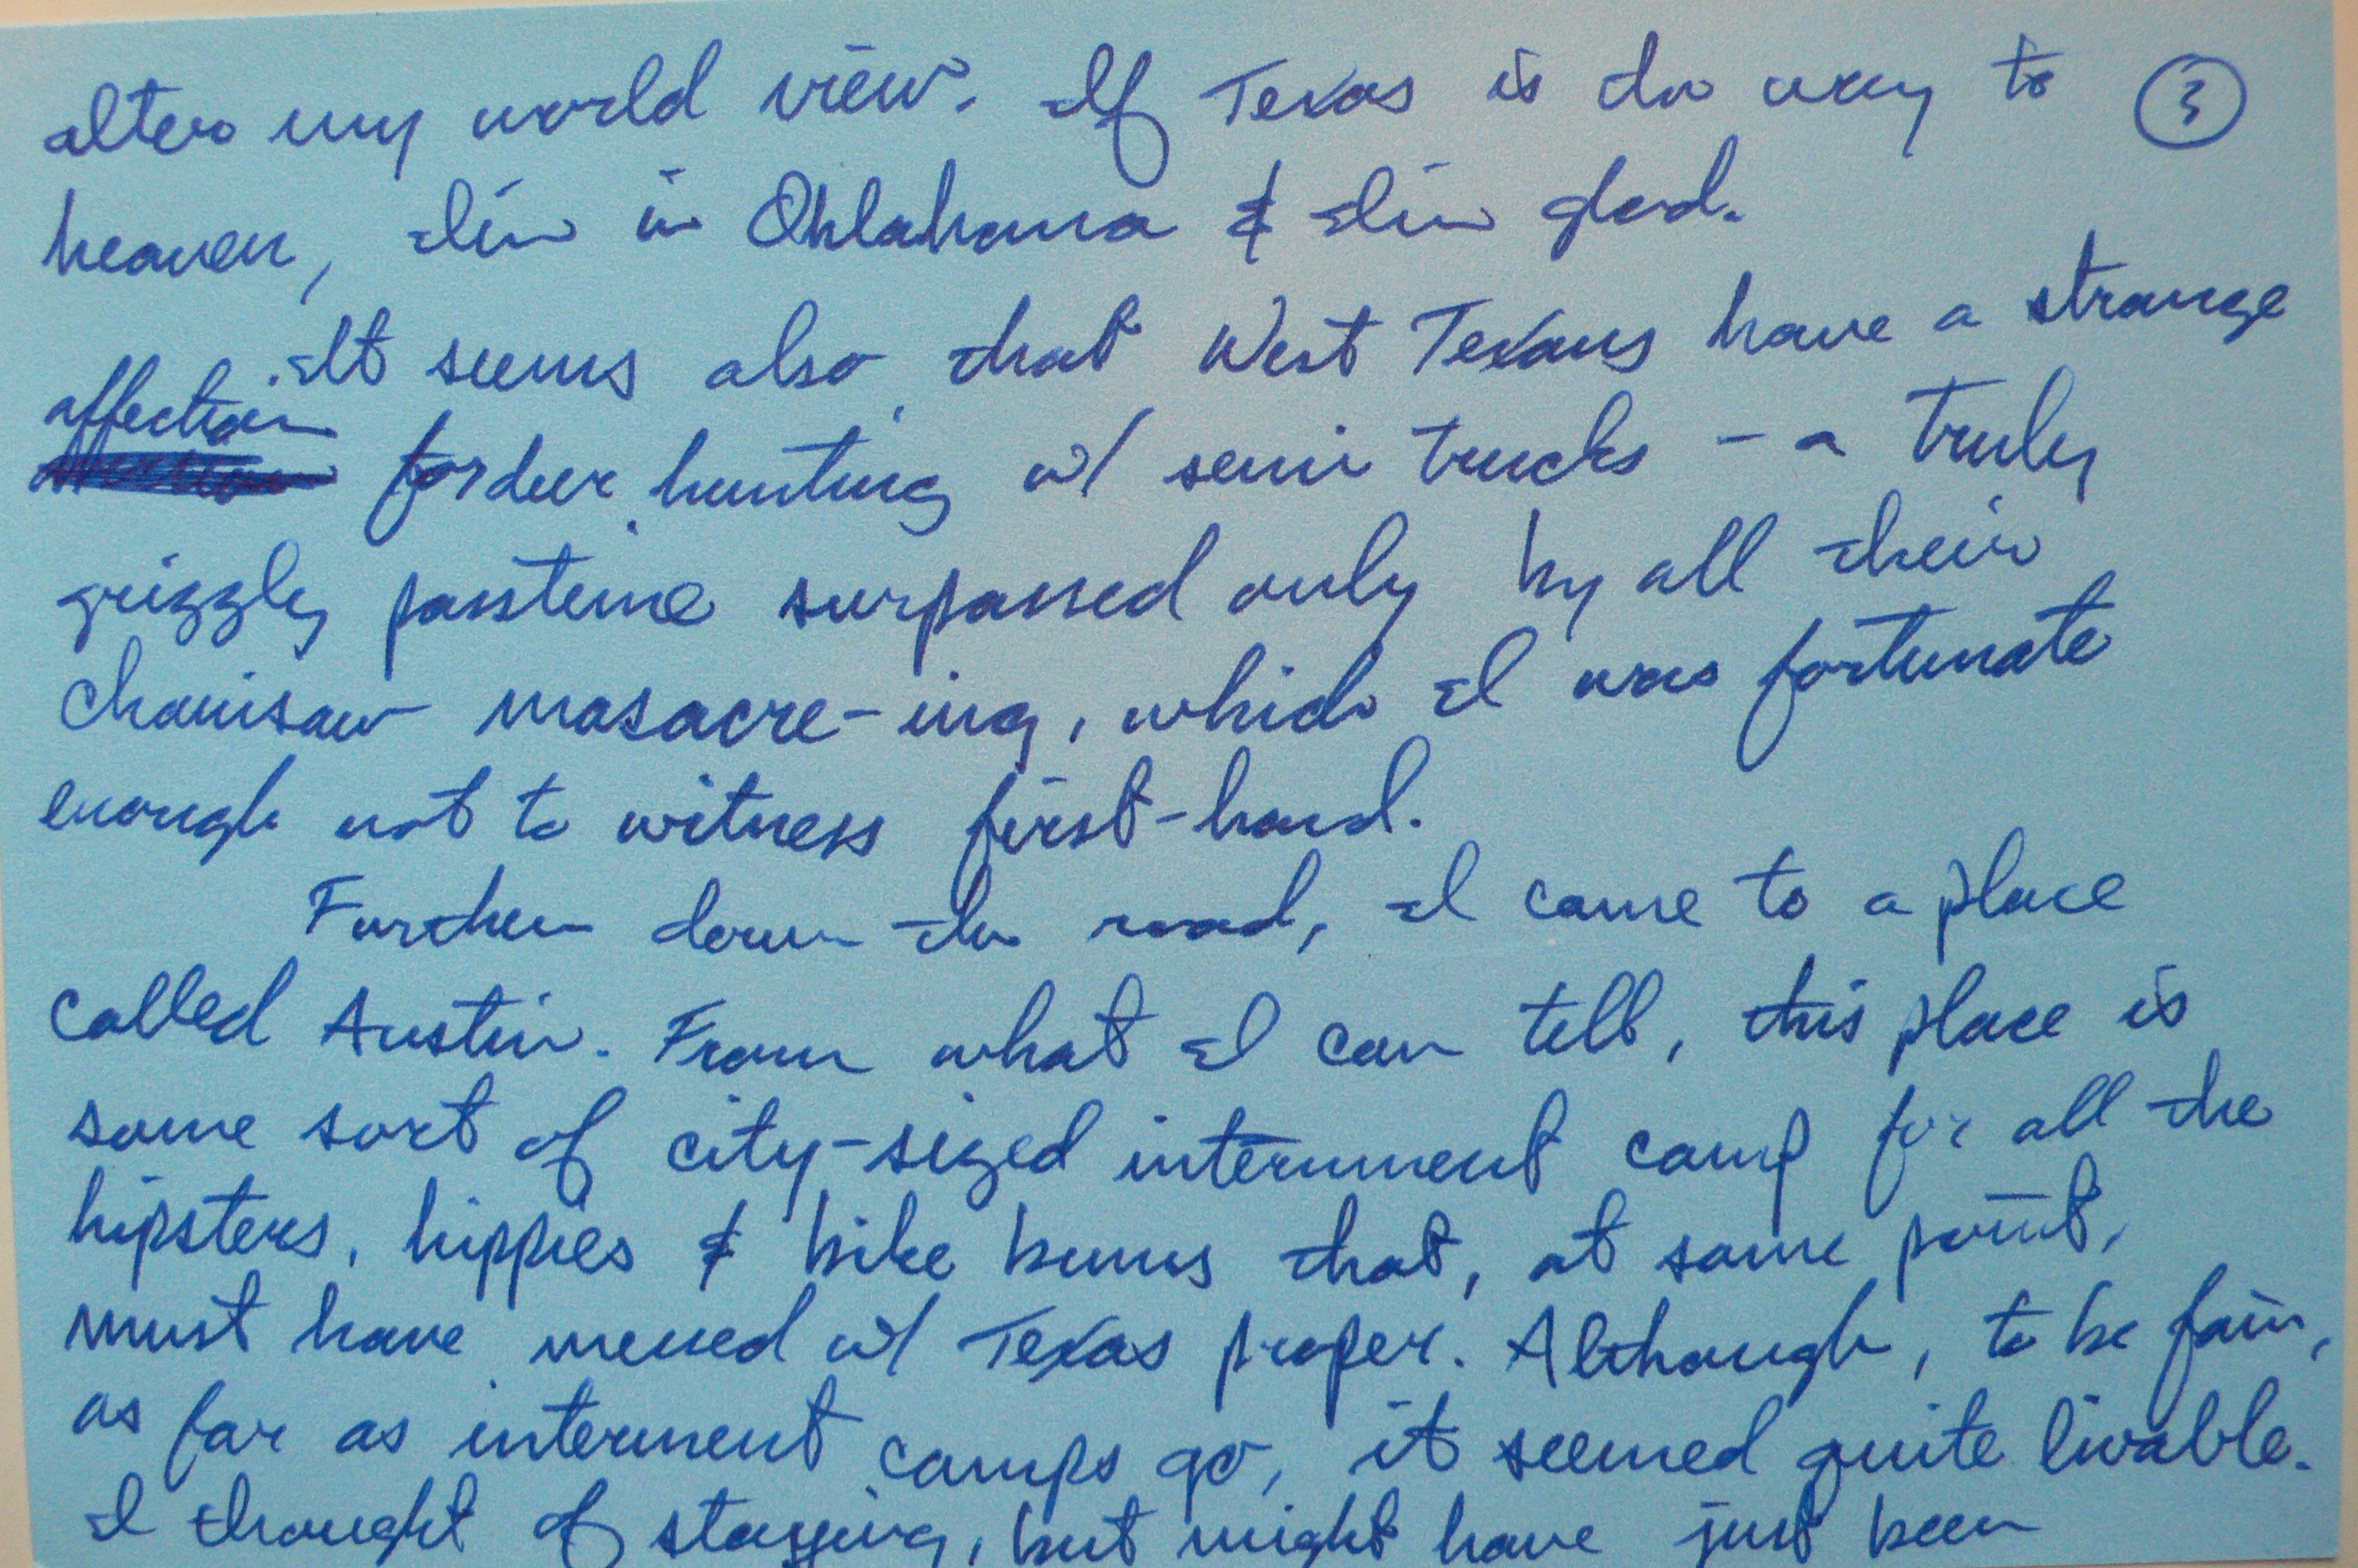 alter my world view. If Texas is the way to ③
heaven, I'm in Oklahoma & I'm glad.
It seems also that West Texans have a strange
affection
for deer hunting w/ semi trucks – a truly
grizzly passtime surpassed only by all their
chainsaw masacre-ing, which I was fortunate
enough not to witness first-hand.
Further down the road, I came to a place
called Austin. From what I can tell, this place is
some sort of city-sized internment camp for all the
hipsters, hippies & bike bums that, at some point,
must have messed w/ Texas proper. Although, to be fair,
as far as interment camps go, it seemed quite livable.
I thought of staying, but might have just been